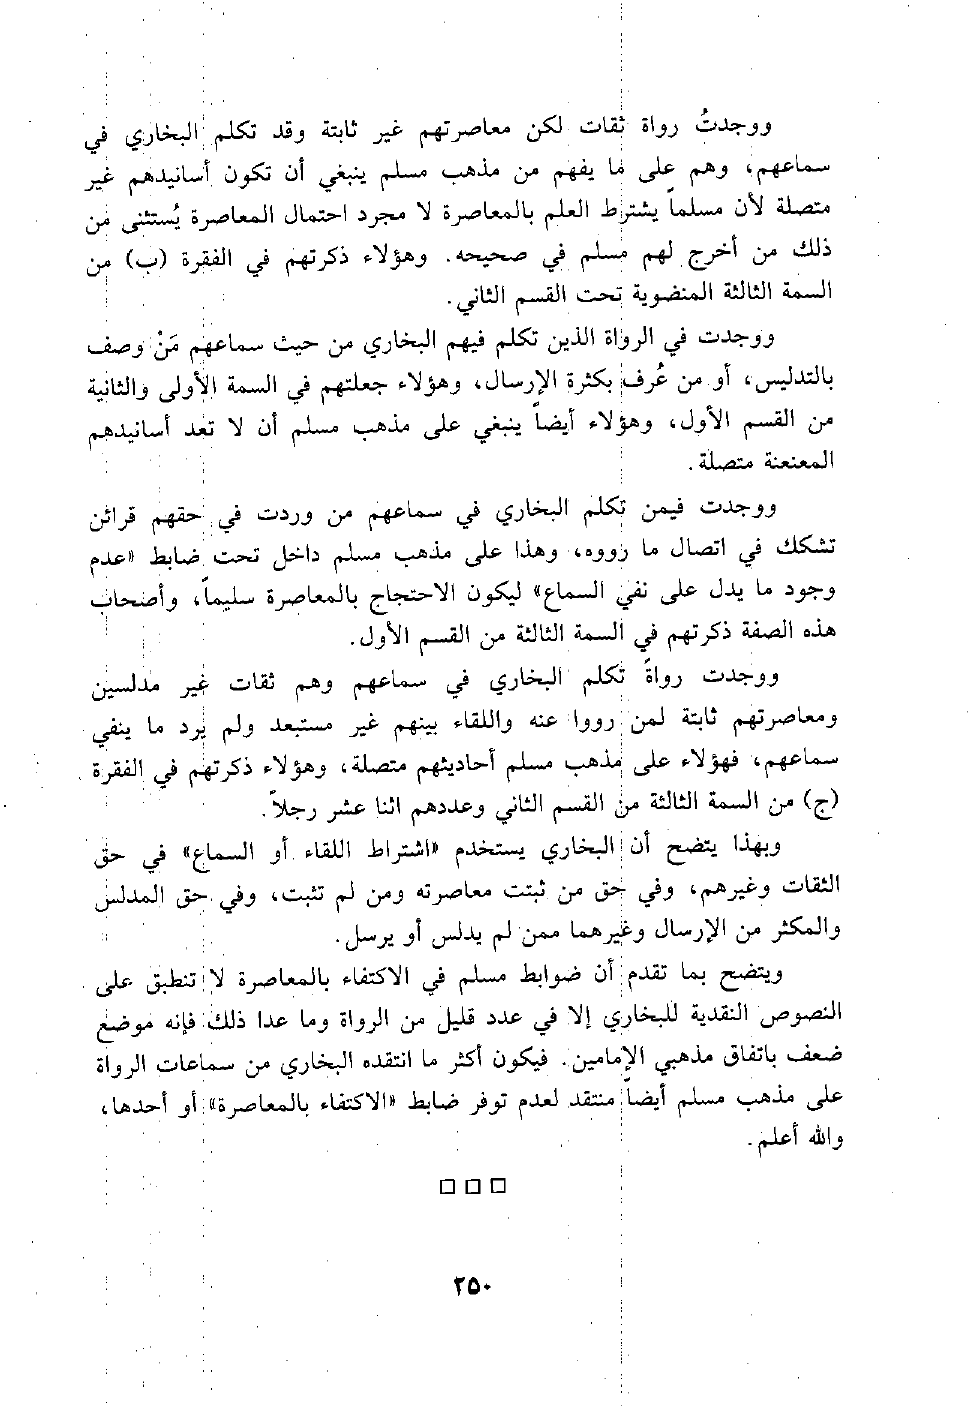 ووجدتُ رواة ثقات لكن معاصرتهم غير ثابتة وقد تكلم البخاري في
سماعهم، وهم على ما يفهم من مذهب مسلم ينبغي أن تكون أسانيدهم غير
متصلة لأن مسلماً يشترط العلم بالمعاصرة لا مجرد احتمال المعاصرة يُستثنى من
ذلك من أخرج لهم مسلم في صحيحه. وهؤلاء ذكرتهم في الفقرة (ب) من
السمة الثالثة المنضوية تحت القسم الثاني.
ووجدت في الرواة الذين تكلم فيهم البخاري من حيث سماعهم مَنْ وصف
بالتدليس، أو من عُرف بكثرة الإرسال، وهؤلاء جعلتهم في السمة الأولى والثانية
من القسم الأول، وهؤلاء أيضاً ينبغي على مذهب مسلم أن لا تعد أسانيدهم
المعنعنة متصلة.
ووجدت فيمن تكلم البخاري في سماعهم من وردت في حقهم قرائن
تشكك في اتصال ما رووه، وهذا على مذهب مسلم داخل تحت ضابط «عدم
وجود ما يدل على نفي السماع» ليكون الاحتجاج بالمعاصرة سليماً، وأصحاب
هذه الصفة ذكرتهم في السمة الثالثة من القسم الأول.
ووجدت رواةً تكلم البخاري في سماعهم وهم ثقات غير مدلسين
ومعاصرتهم ثابتة لمن رووا عنه واللقاء بينهم غير مستبعد ولم يرد ما ينفي
سماعهم، فهؤلاء على مذهب مسلم أحاديثهم متصلة، وهؤلاء ذكرتهم في الفقرة
(ج) من السمة الثالثة من القسم الثاني وعددهم اثنا عشر رجلاً.
وبهذا يتضح أن البخاري يستخدم «اشتراط اللقاء أو السماع» في حق
الثقات وغيرهم، وفي حق من ثبتت معاصرته ومن لم تثبت، وفي حق المدلس
والمكثر من الإرسال وغيرهما ممن لم يدلس أو يرسل.
ويتضح بما تقدم أن ضوابط مسلم في الاكتفاء بالمعاصرة لا تنطبق على
النصوص النقدية للبخاري إلا في عدد قليل من الرواة وما عدا ذلك فإنه موضع
ضعف باتفاق مذهبي الإمامين. فيكون أكثر ما انتقده البخاري من سماعات الرواة
على مذهب مسلم أيضاً منتقد لعدم توفر ضابط «الاكتفاء بالمعاصرة» أو أحدها،
والله أعلم.
٢٥٠